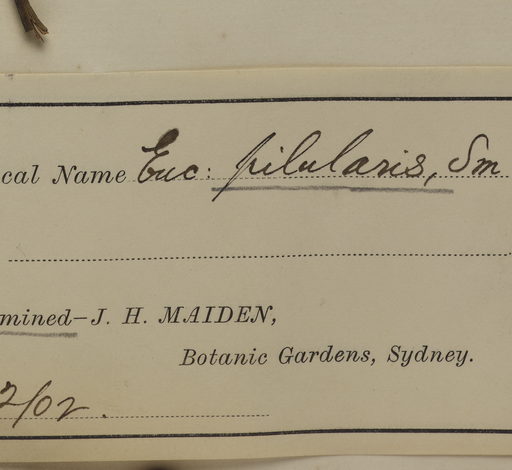 cal Name Euc: pilularis, Sm
mined-J. H. MAIDEN,
Botanic Gardens, Sydney.
2/02.